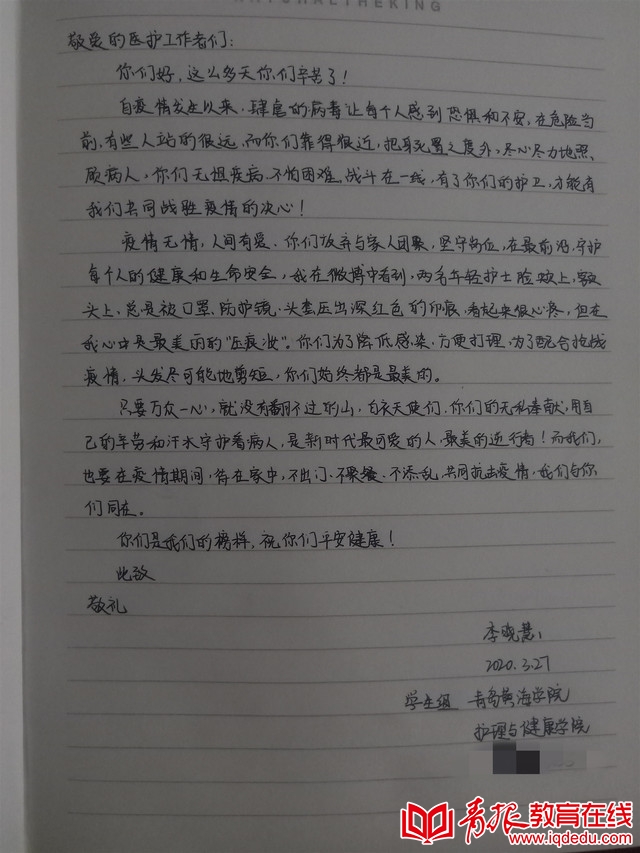 NATURALTHEKING
敬爱的医护工作者们:
你们好,这么多天你们辛苦了!
自疫情发生以来,肆虐的病毒让每个人感到恐惧和不安,在危险当
前,有些人站的很远,而你们靠得很近,把身死置之度外,尽心尽力地照
顾病人,你们无惧疾病、不怕困难,战斗在一线,有了你们的护卫,才能有
我们共同战胜疫情的决心!
疫情无情,人间有爱。你们放弃与家人团聚,坚守岗位,在最前沿,守护
每个人的健康和生命安全,我在微博中看到,两名年轻护士脸颊上,额
头上,总是被口罩、防护镜、头套压出深红色的印痕,看起来很心疼,但在
我心中是最美丽的“压痕妆”。你们为了降低感染,方便打理,为了配合抗战
疫情,头发尽可能地剪短,你们始终都是最美的。
只要万众一心,就没有翻不过的山,白衣天使们,你们的无私奉献,用自
己的辛劳和汗水守护着病人,是新时代最可爱的人,最美的逆行者!而我们,
也要在疫情期间,待在家中,不出门、不聚餐、不添乱,共同抗击疫情,我们与你
们同在。
你们是我们的榜样,祝你们平安健康!
此致
敬礼
李晓慧
2020.3.27
学生组 青岛黄海学院
护理与健康学院
青报教育在线
www.iqdedu.com